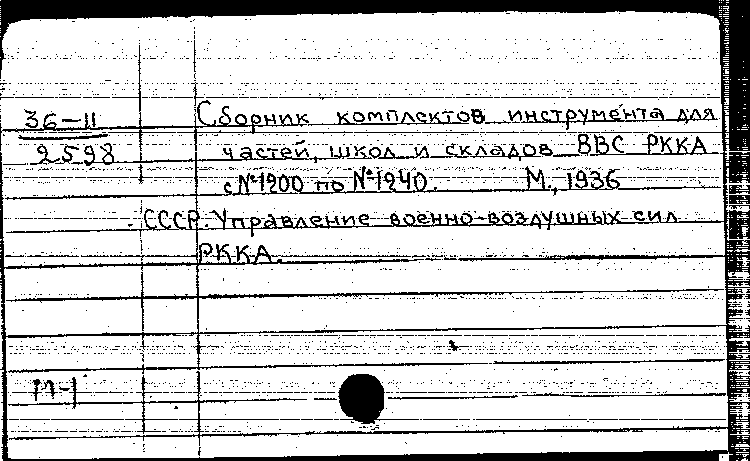 36-11
2598
Сборник комплектов инструмента для
частей, школ и складов ВВС РККА
с №1200 по №1240. М., 1936
СССР. Управление военно-воздушных сил
РККА.
М-1